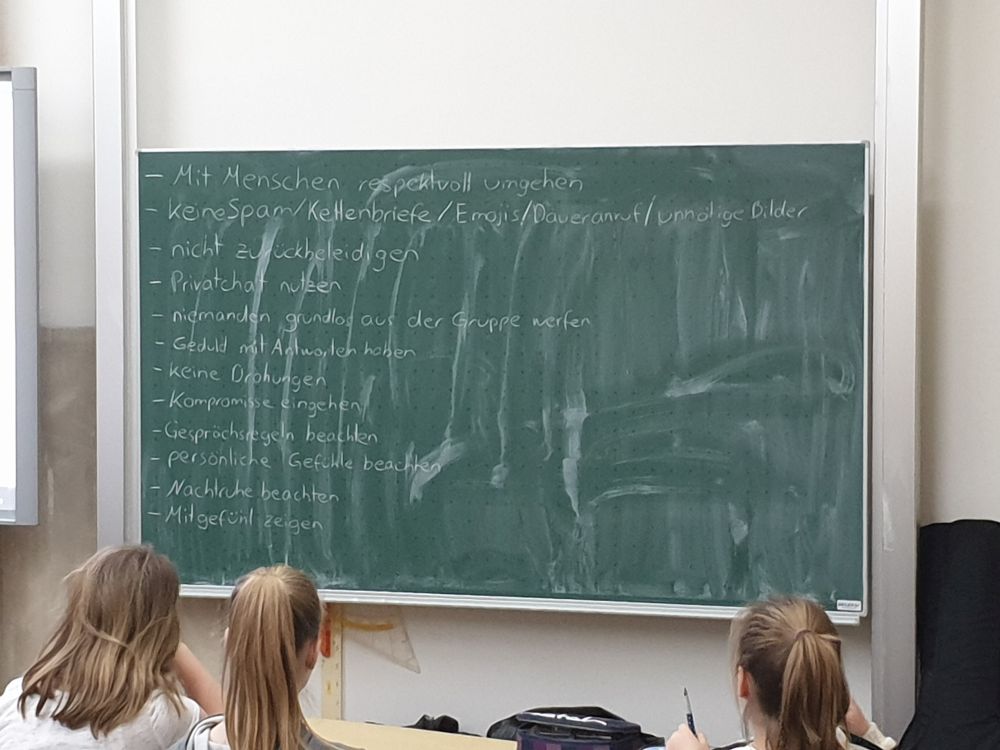 – Mit Menschen respektvoll umgehen
– keine Spam/Kettenbriefe/Emojis/Daueranruf/unnötige Bilder
– nicht zurückbeleidigen
– Privatchat nutzen
– niemanden grundlos aus der Gruppe werfen
– Geduld mit Antworten haben
– keine Drohungen
– Kompromisse eingehen
– Gesprächsregeln beachten
– persönliche Gefühle beachten
– Nachtruhe beachten
– Mitgefühl zeigen